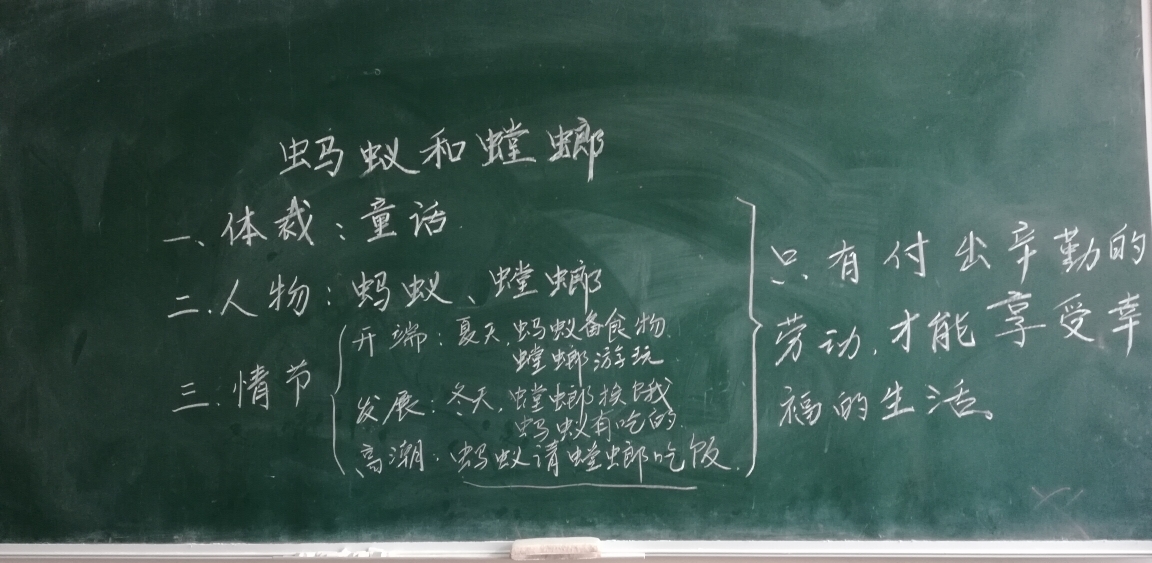 蚂蚁和螳螂
一、体裁：童话
二、人物：蚂蚁、螳螂
三、情节
开端：夏天，蚂蚁备食物
螳螂游玩
发展：冬天，螳螂挨饿
蚂蚁有吃的
高潮：蚂蚁请螳螂吃饭
只有付出辛勤的
劳动，才能享受幸
福的生活。